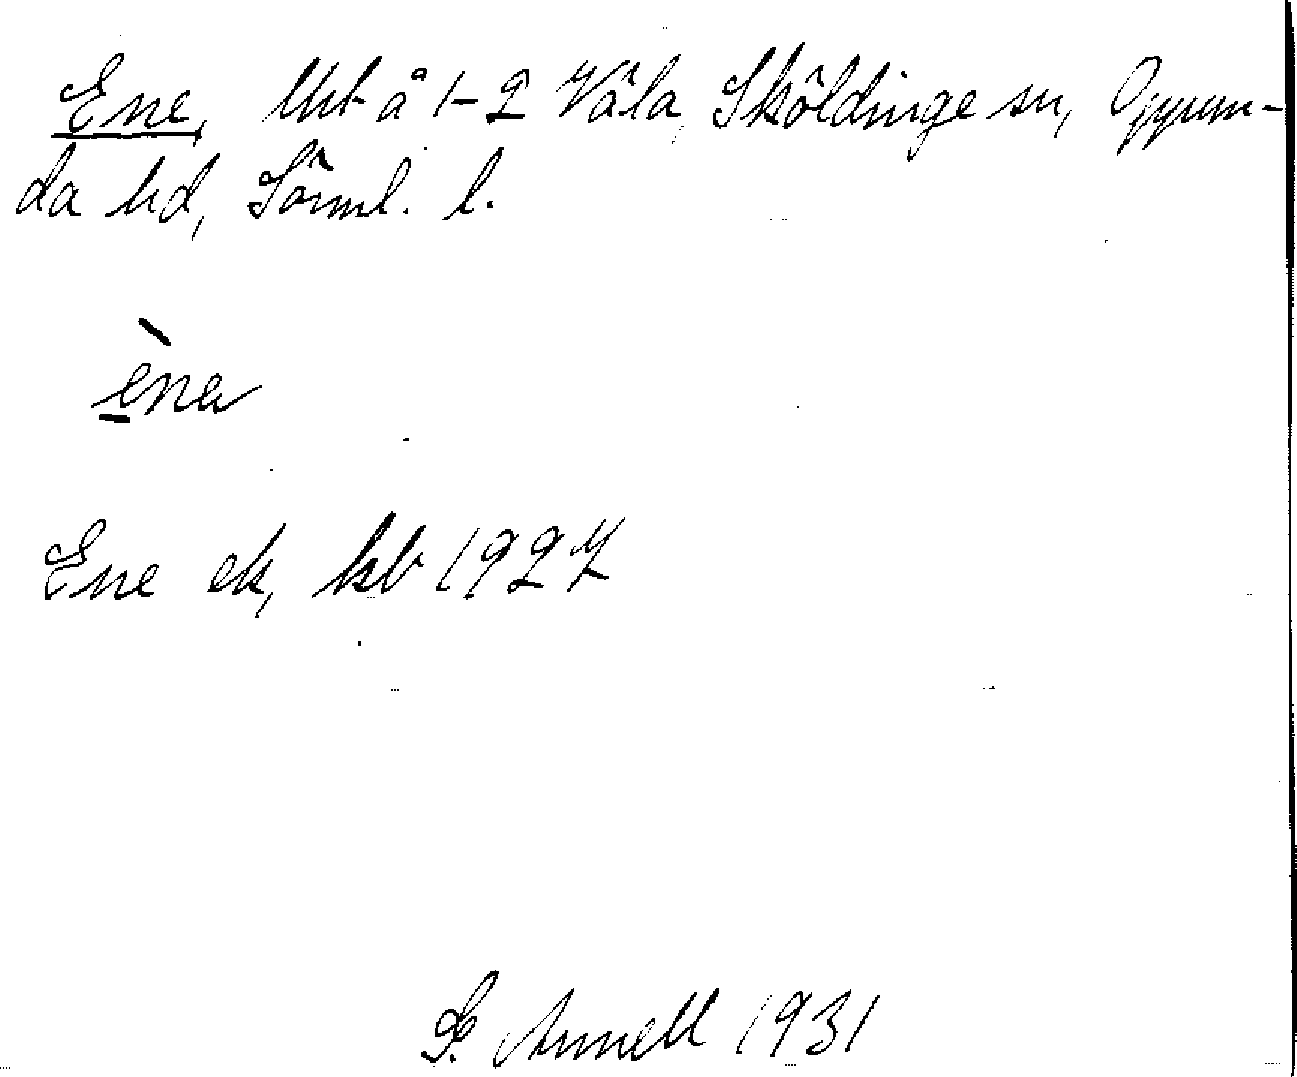 Ene, Utb å 1-2 Våla, Sköldinge sn, Oppun-
da hd, Sörml. l.
èna
Ene ek, kb 1927
S. Annell 1931